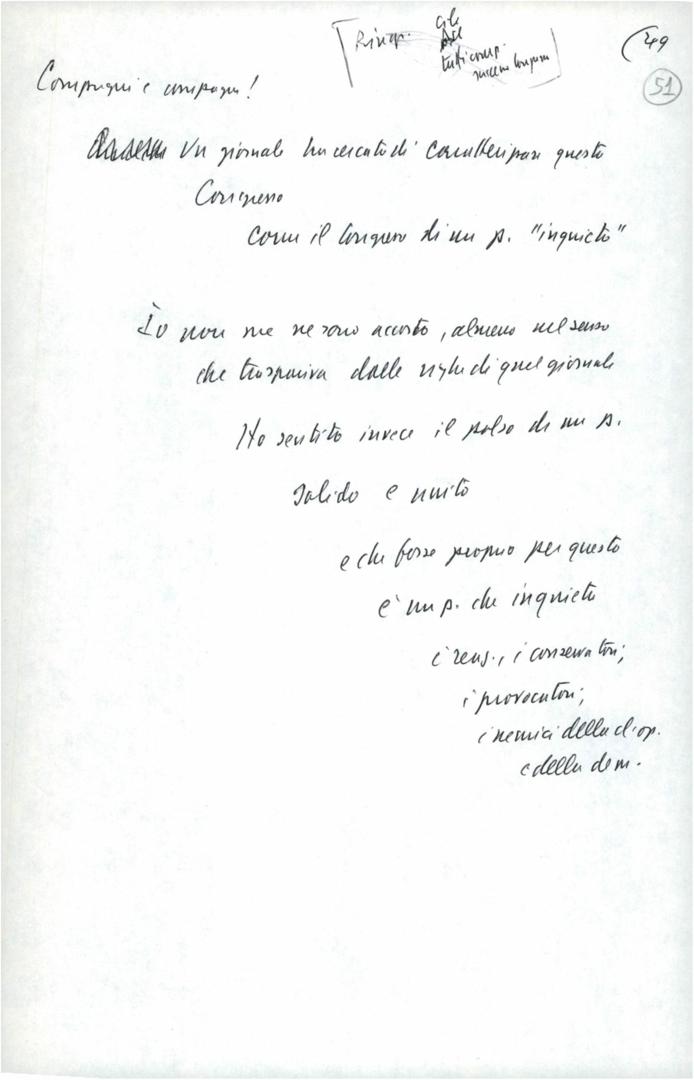 [Ringr.
tutti comp.
(49
51
Compagni e compagne!
Un giornale ha cercato di caratterizzare questo
Congresso
come il Congresso di un p. "inquieto"
Io non me ne sono accorto, almeno nel senso
che traspariva dalle righe di quel giornale
Ho sentito invece il polso di un p.
solido e unito
e che forse proprio per questo
è un p. che inquieta
i reaz., i conservatori;
i provocatori;
i nemici della cl. op.
e della dem.